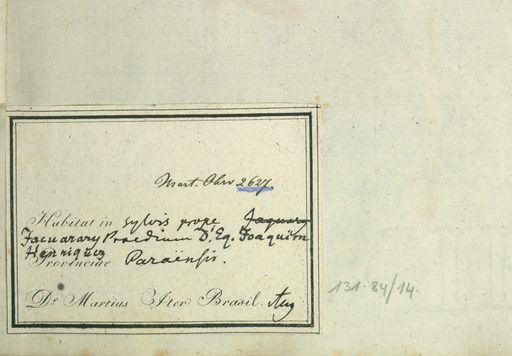 Mart. Obs 2627.
Habitat in sylvis prope Jaquary
Jacuarary Praedium D. Eq. Joaquim
Henriquez
Provinciae Paraënsis.
Dr Martius Iter Brasil. Aug
131-84/14.